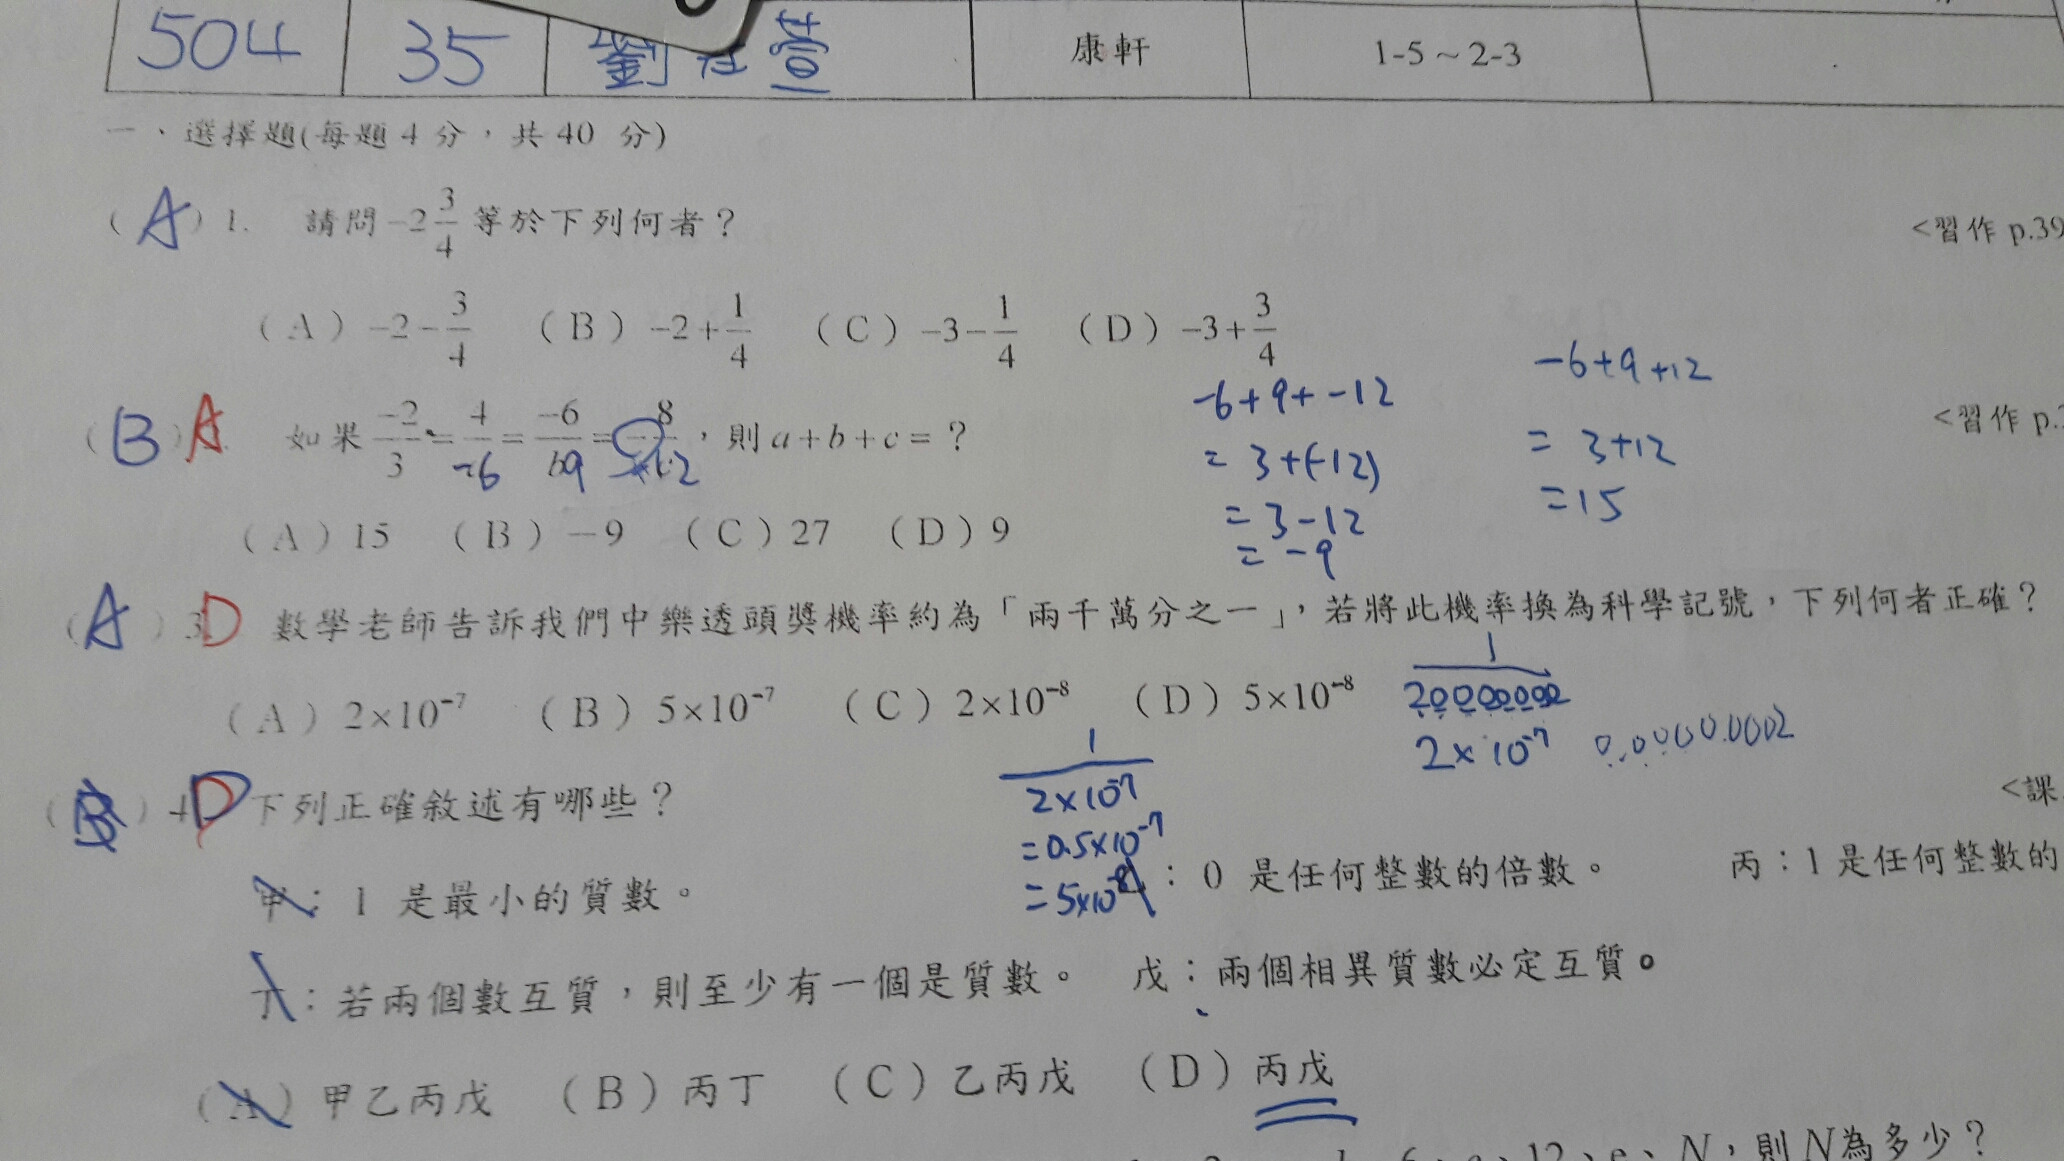 504 35 劉 萱 康軒 1-5～2-3
一、選擇題(每題4分，共40 分)
(A) 1. 請問 -2 3/4 等於下列何者？ <習作 p.39
(A) -2 - 3/4 (B) -2 + 1/4 (C) -3 - 1/4 (D) -3 + 3/4
-6+9+-12
= 3+(-12)
= 3-12
= -9
-6+9+12
= 3+12
=15
(B) A 如果 -2/3 = 4/-6 = -6/b9 = 8/ ，則 a+b+c=？ <習作 p.
(A) 15 (B) －9 (C) 27 (D) 9
(A) 3 D 數學老師告訴我們中樂透頭獎機率約為「兩千萬分之一」，若將此機率換為科學記號，下列何者正確？
(A) 2×10⁻⁷ (B) 5×10⁻⁷ (C) 2×10⁻⁸ (D) 5×10⁻⁸
1
2×10⁻⁷
1
2×10⁻⁷
=0.5×10⁻⁷
=5×10⁻⁸
(B) 4 D 下列正確敘述有哪些？ <課
甲：1 是最小的質數。 ：0 是任何整數的倍數。 丙：1 是任何整數的
丁：若兩個數互質，則至少有一個是質數。 戊：兩個相異質數必定互質。
(A) 甲乙丙戊 (B) 丙丁 (C) 乙丙戊 (D) 丙戊
6、a、12、e、N，則N為多少？